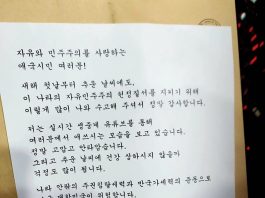 자유와 민주주의를 사랑하는
애국시민 여러분!
새해 첫날부터 추운 날씨에도,
이 나라의 자유민주주의 헌정질서를 지키기 위해
이렇게 많이 나와 수고해 주셔서 정말 감사합니다.
저는 실시간 생중계 유튜브를 통해
여러분께서 애쓰시는 모습을 보고 있습니다.
정말 고맙고 안타깝습니다.
그리고 추운 날씨에 건강 상하시지 않을까
걱정도 많이 됩니다.
나라 안팎의 주권침탈세력과 반국가세력의 준동으로
위험합니다.